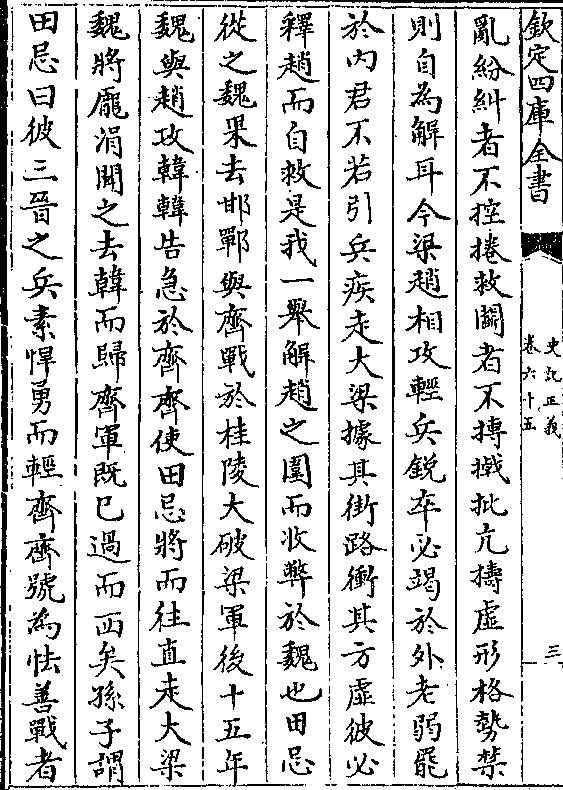 欽定四庫全書
史記正義
卷六十五
三
亂紛糾者不控捲救鬭者不搏撠批亢擣虛形格勢禁
則自為解耳今梁趙相攻輕兵銳卒必竭於外老弱罷
於内君不若引兵疾走大梁據其街路衝其方虛彼必
釋趙而自救是我一舉解趙之圍而收弊於魏也田忌
從之魏果去邯鄲與齊戰於桂陵大破梁軍後十五年
魏與趙攻韓韓告急於齊齊使田忌將而往直走大梁
魏將龎涓聞之去韓而歸齊軍既已過而西矣孫子謂
田忌曰彼三晉之兵素悍勇而輕齊齊號為怯善戰者